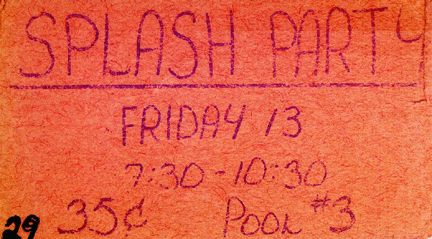 SPLASH PARTY
FRIDAY 13
7:30-10:30
29 35¢ POOL #3